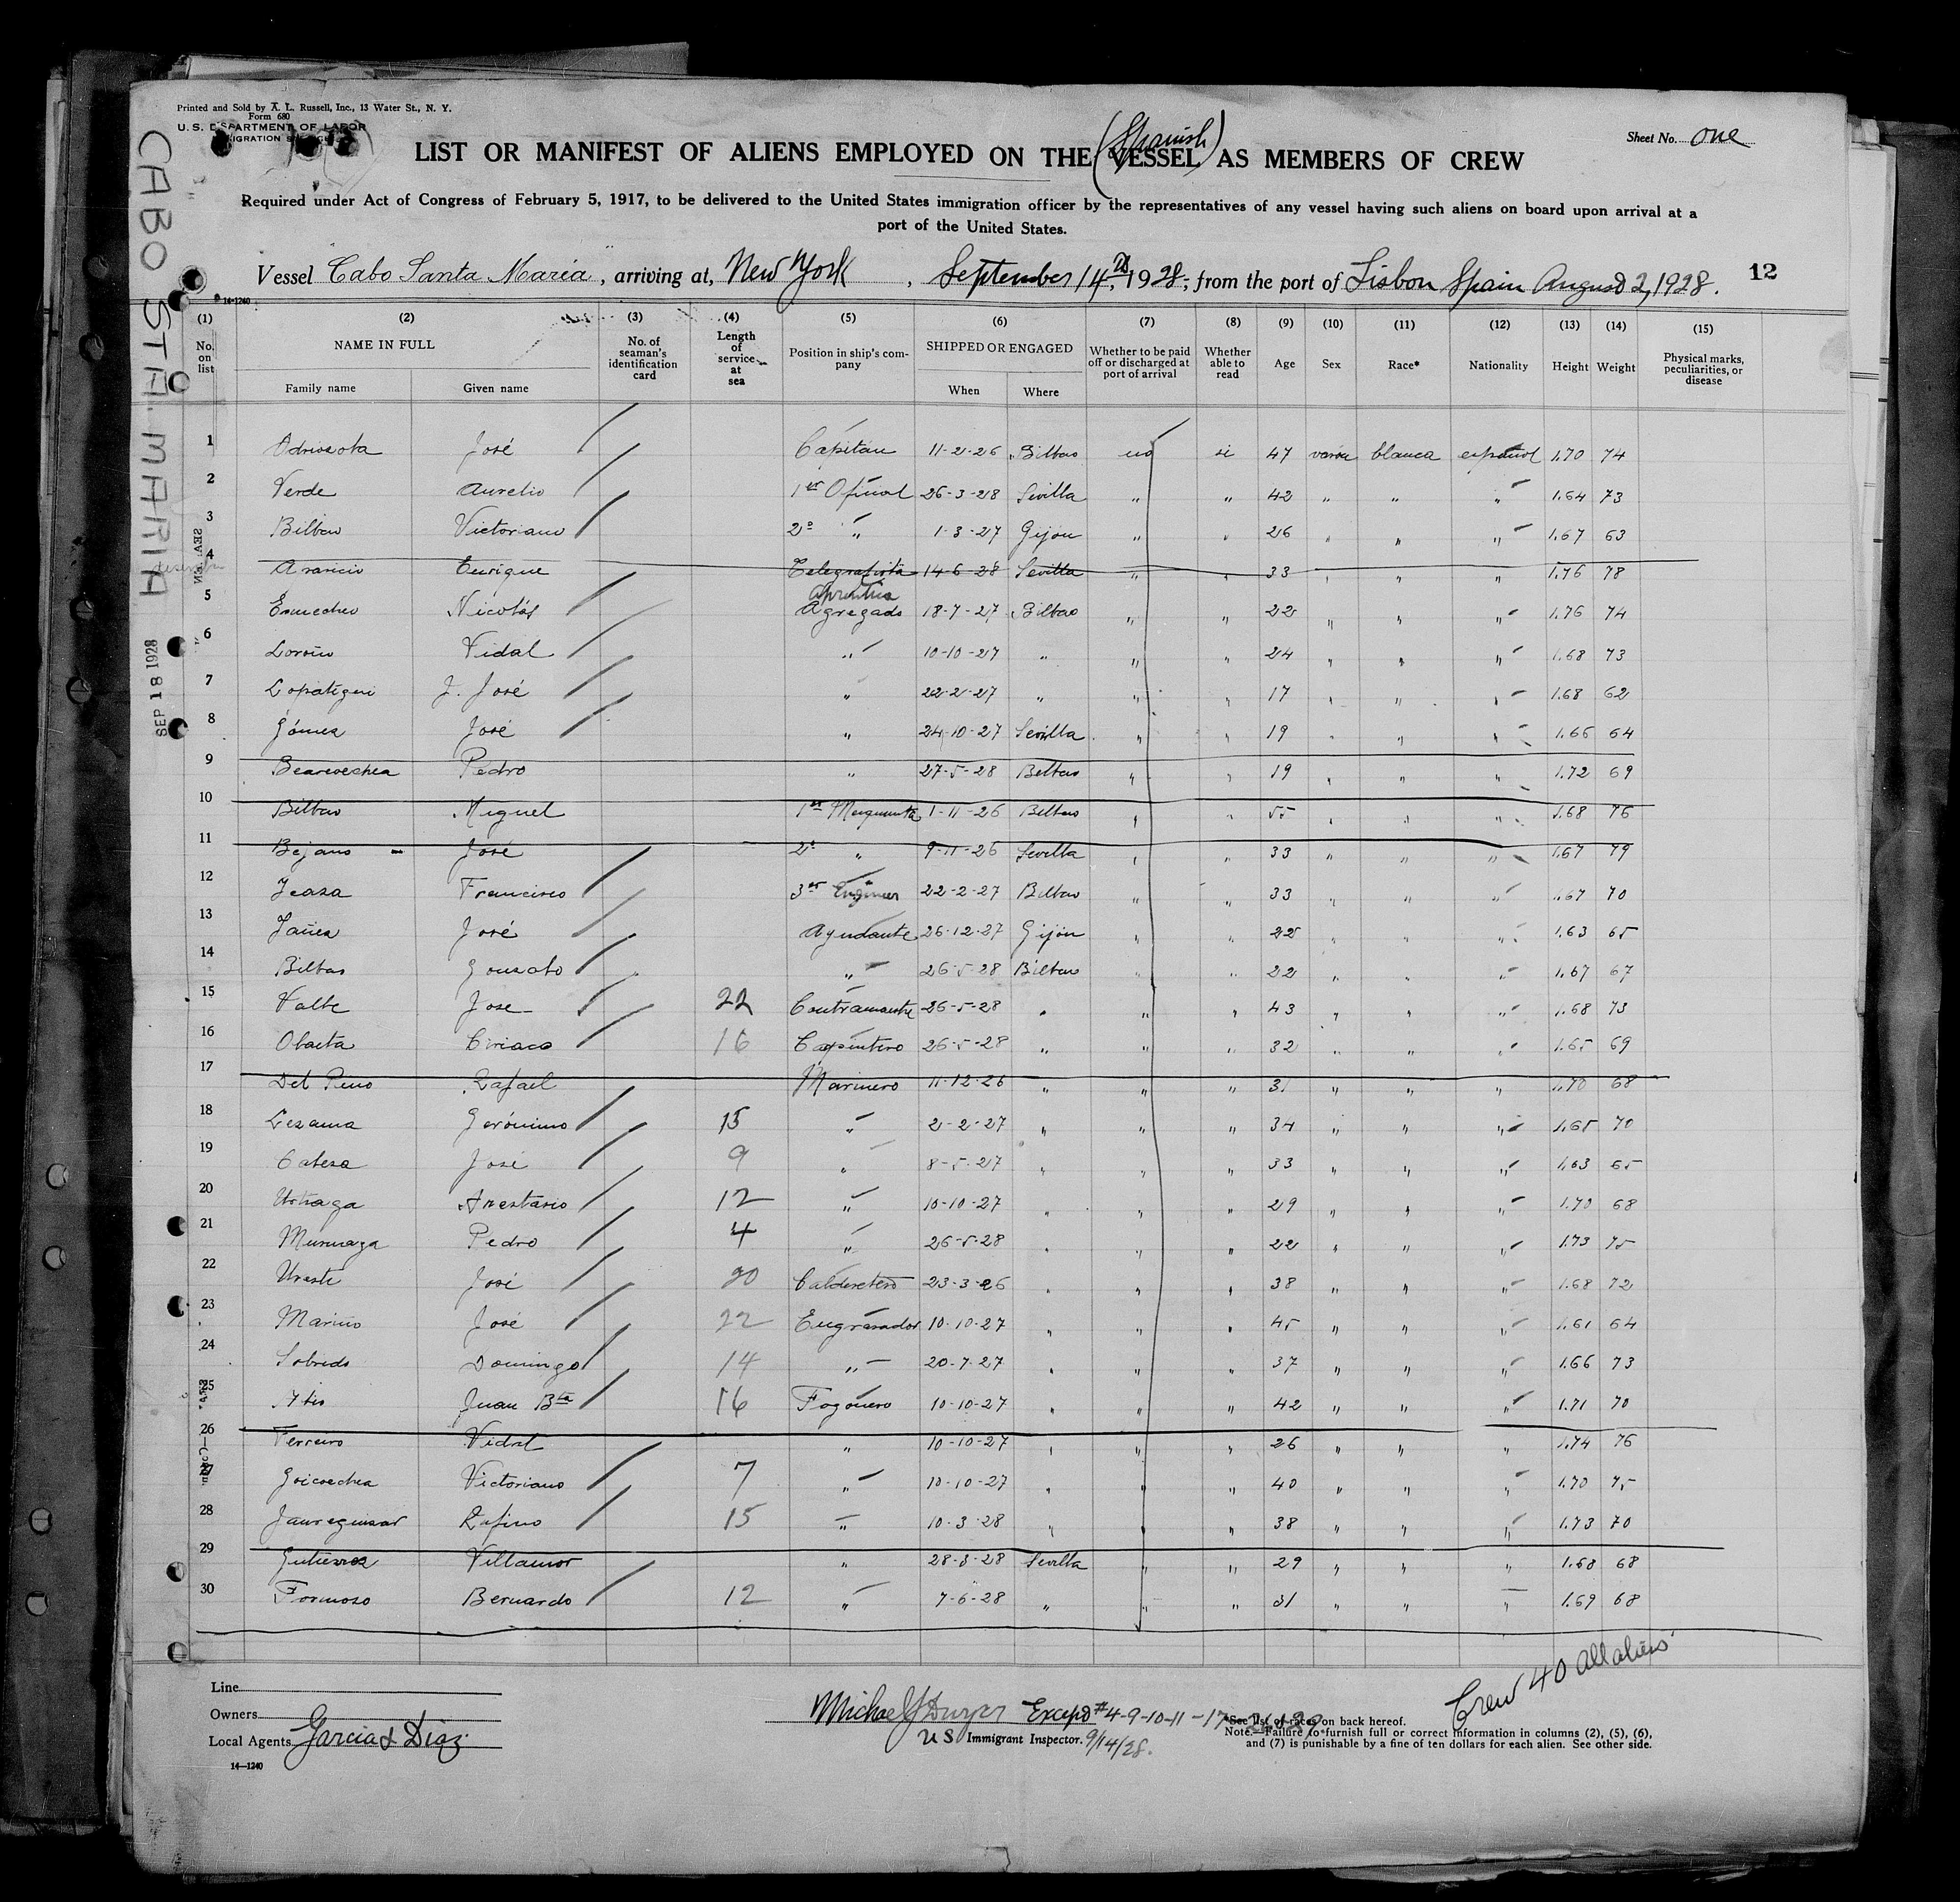 Printed and Sold by A. L. Russell, Inc., 13 Water St., N. Y.
Form 680
U. S. DEPARTMENT OF LABOR
IMMIGRATION
Sheet No. one
(Spanish)
LIST OR MANIFEST OF ALIENS EMPLOYED ON THE VESSEL AS MEMBERS OF CREW
Required under Act of Congress of February 5, 1917, to be delivered to the United States immigration officer by the representatives of any vessel having such aliens on board upon arrival at a
port of the United States.
Vessel Cabo Santa Maria, arriving at, New York, September 14, 1928, from the port of Lisbon Spain August 2, 1928. 12
14-1240
CABO STA. MARIA
SEP 18 1928
(1) (2) (3) (4) (5) (6) (7) (8) (9) (10) (11) (12) (13) (14) (15)
No. on list
NAME IN FULL
Family name Given name
No. of seaman's identification card
Length of service at sea
Position in ship's company
SHIPPED OR ENGAGED
When Where
Whether to be paid off or discharged at port of arrival
Whether able to read
Age Sex Race* Nationality Height Weight
Physical marks, peculiarities, or disease
1 José Capitan 11-2-26 Bilbao no si 47 varón blanca español 1.70 74
2 Verde Aurelio 1er Oficial 26-3-28 Sevilla " " 42 " " " 1.64 73
3 Bilbao Victoriano 2º " 1-3-27 Gijón " " 26 " " " 1.67 63
4 Enrique Telegrafista 14-6-28 Sevilla " " 33 " " " 1.76 78
5 Nicolás Agregado 18-7-27 Bilbao " " 22 " " " 1.76 74
6 Vidal " 10-10-27 " " " 24 " " " 1.68 73
7 J. José " 22-2-27 " " " 17 " " " 1.68 62
8 Gómez José " 24-10-27 Sevilla " " 19 " " " 1.66 64
9 Pedro " 27-5-28 Bilbao " " 19 " " " 1.72 69
10 Bilbao Miguel 1er Maquinista 1-11-26 Bilbao " " 55 " " " 1.68 76
11 Bejano José 2º " 9-11-26 Sevilla " " 33 " " " 1.67 79
12 Francisco 3er Engineer 22-2-27 Bilbao " " 33 " " " 1.67 70
13 José Ayudante 26-12-27 Gijón " " 22 " " " 1.63 65
14 Bilbao Gonzalo " 26-5-28 Bilbao " " 22 " " " 1.67 67
15 Valle Jose 22 Contramaestre 26-5-28 " " " 43 " " " 1.68 73
16 Olaeta Ciriaco 16 Carpintero 26-5-28 " " " 32 " " " 1.65 69
17 Del Pino Rafael Marinero 11-12-26 " " " 31 " " " 1.70 68
18 Lezama Gerónimo 15 " 2-2-27 " " " 34 " " " 1.65 70
19 José 9 " 8-5-27 " " " 33 " " " 1.63 65
20 Anastasio 12 " 10-10-27 " " " 29 " " " 1.70 68
21 Muruaga Pedro 4 " 26-5-28 " " " 22 " " " 1.73 75
22 José 20 Calderetero 23-3-26 " " " 38 " " " 1.68 72
23 Mariño José 22 Engrasador 10-10-27 " " " 45 " " " 1.61 64
24 Sobrido Domingo 14 " 20-7-27 " " " 37 " " " 1.66 73
25 Juan Bta 16 Fogonero 10-10-27 " " " 42 " " " 1.71 70
26 Ferreiro Vidal " 10-10-27 " " " 26 " " " 1.74 76
27 Goicoechea Victoriano 7 " 10-10-27 " " " 40 " " " 1.70 75
28 Jaureguizar Rufino 15 " 10-3-28 " " " 38 " " " 1.73 70
29 Gutierrez Villamor " 28-3-28 Sevilla " " 29 " " " 1.68 68
30 Formoso Bernardo 12 " 7-6-28 " " " 31 " " " 1.69 68
Crew 40 all aliens
Line
Owners
Local Agents Garcia & Diaz
14—1240
Michael J Dwyer Except #4-9-10-11-17-26&29
US Immigrant Inspector. 9/14/28.
*See list of races on back hereof.
Note.—Failure to furnish full or correct information in columns (2), (5), (6),
and (7) is punishable by a fine of ten dollars for each alien. See other side.